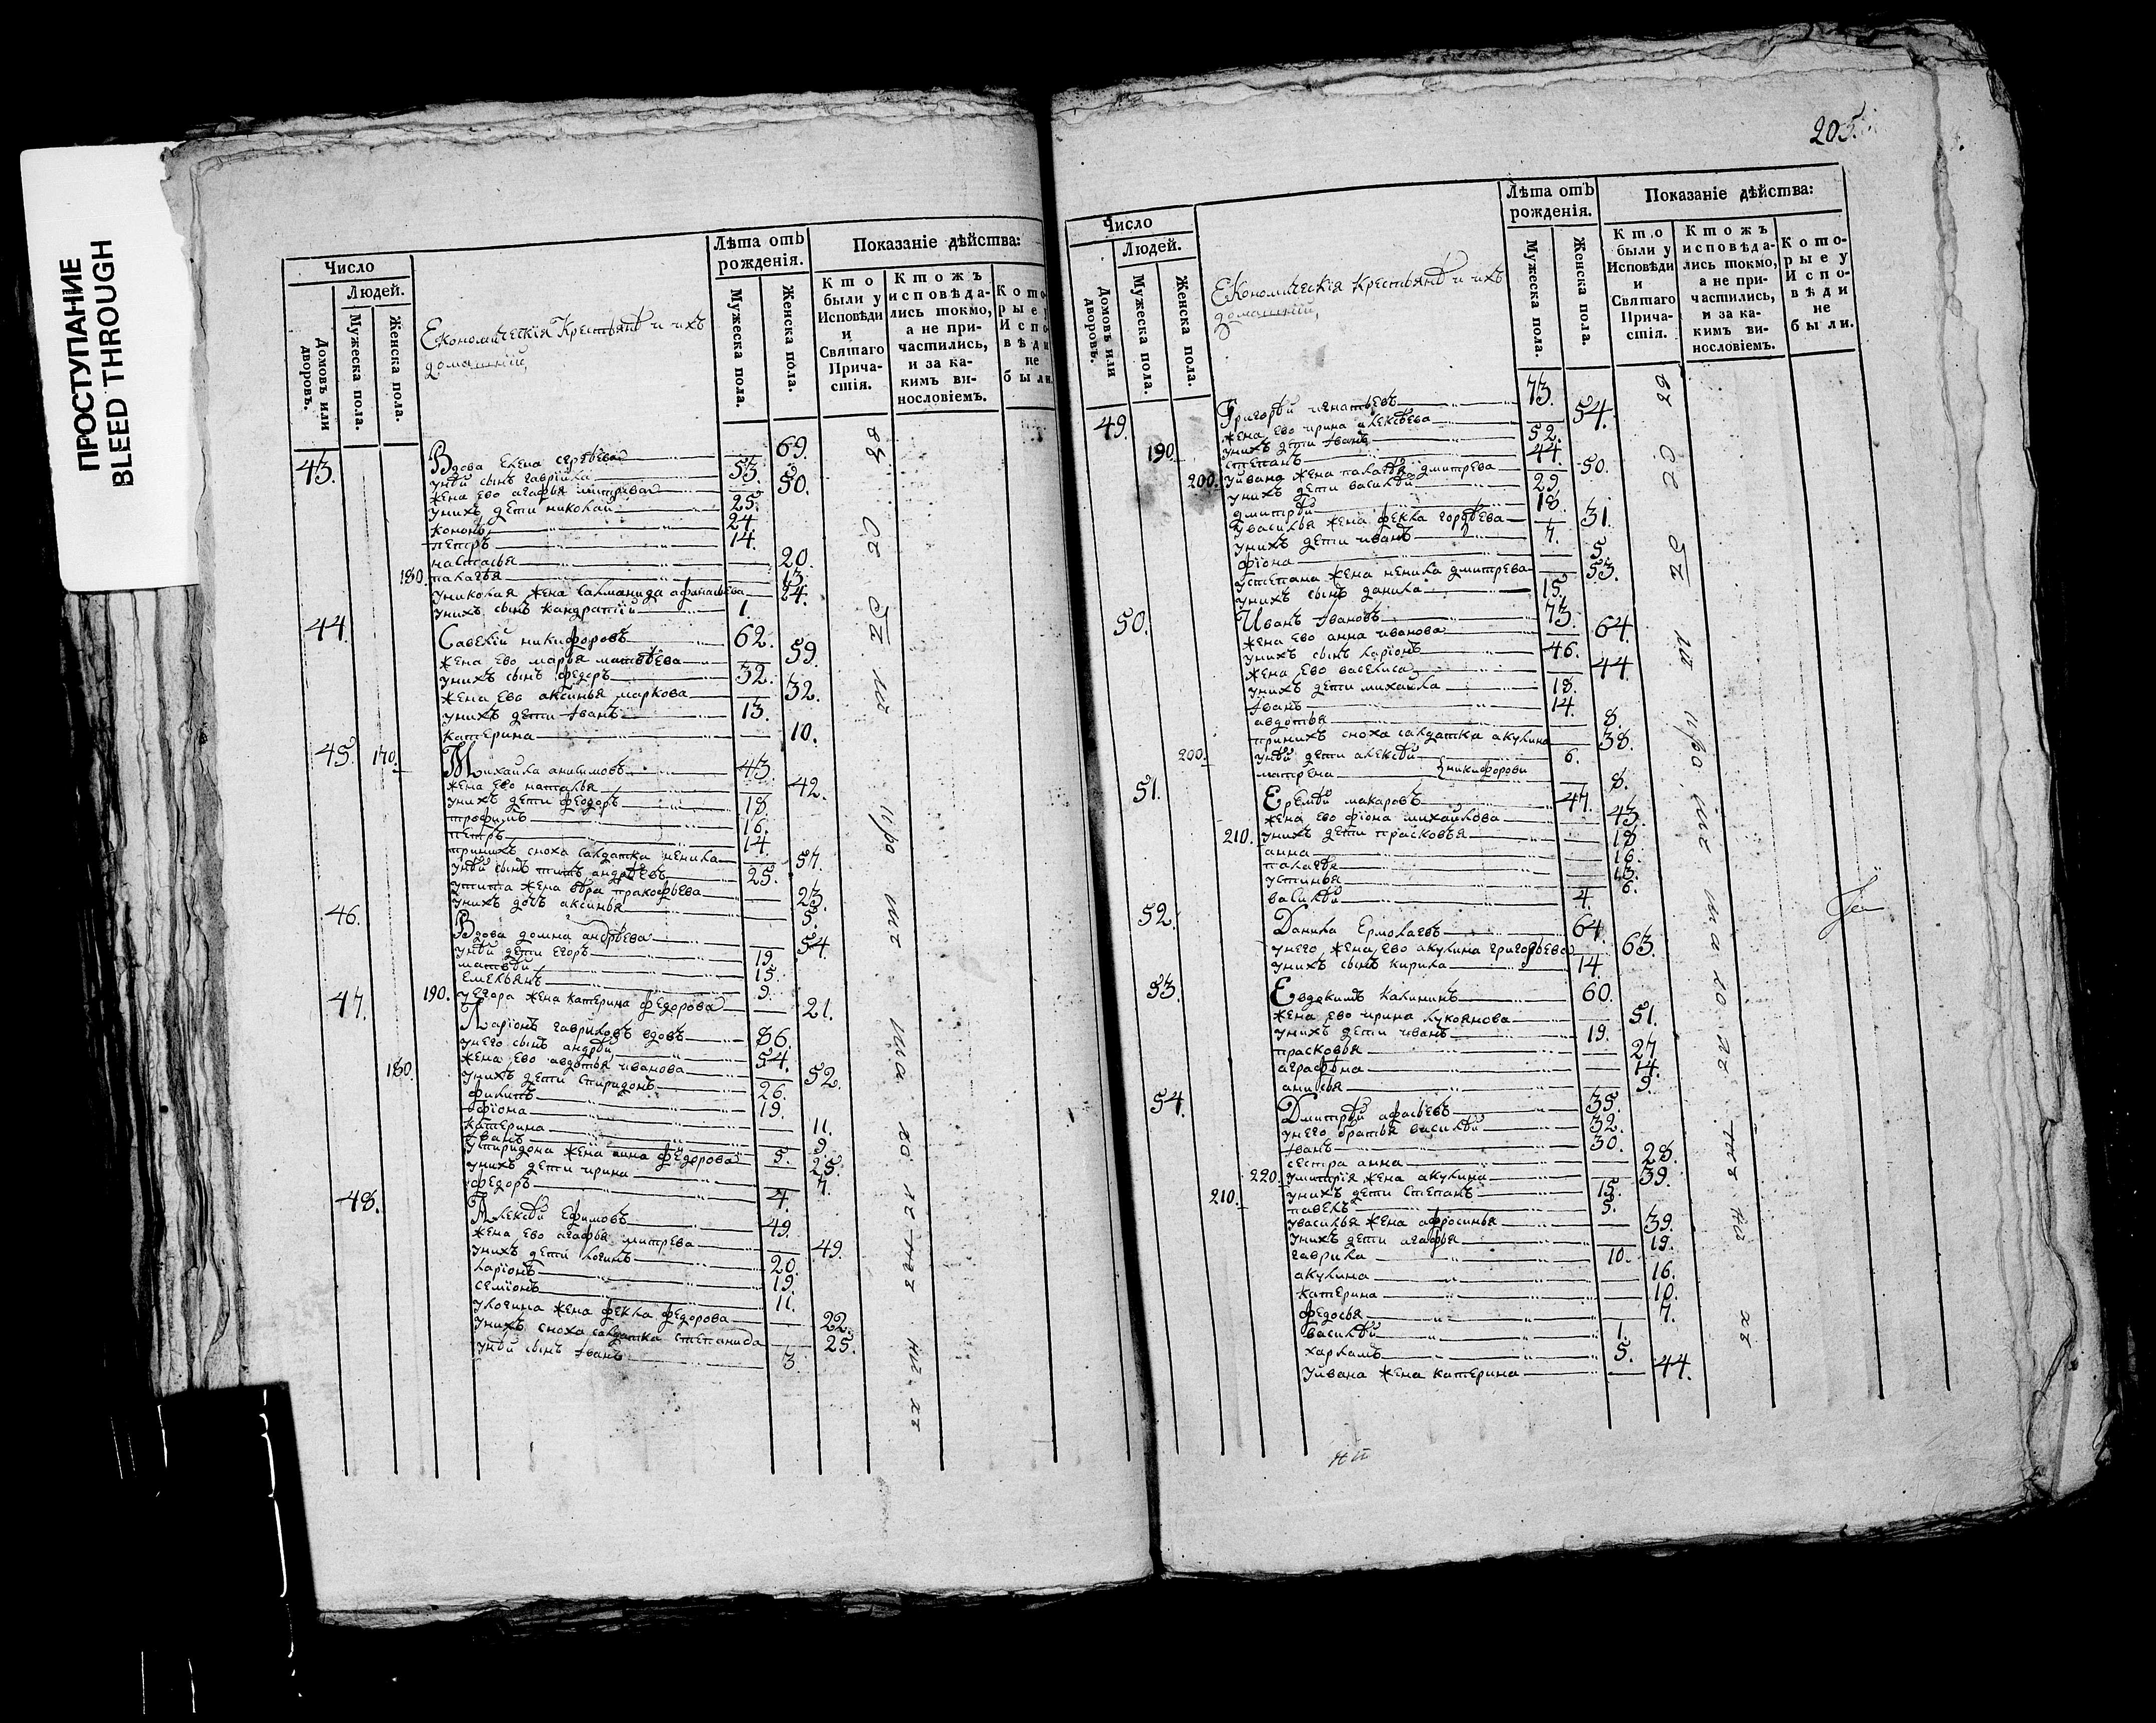 ПРОСТУПАНИЕ
BLEED THROUGH
Число
Людей.
Домовъ или дворовъ.
Мужеска пола.
Женска пола.
Економическiя Крестьянѣ и ихъ
домашнiи,
Лѣта отъ
рожденiя.
Мужеска пола.
Женска пола.
Показанiе дѣйства:
Кто были у Исповѣди и Святаго Прича- стiя.
Ктожъ исповѣда- лись токмо, а не при- частились, и за ка- кимъ ви- нословiемъ.
Кото рые у Испо вѣди не были.
43. Вдова Елена сергѣева 69.
унѣй сынъ гаврiила 53.
жена ево агафья митрева 50.
унихъ дети николай 25.
кононъ 24.
петръ 14.
наталья 20.
180. палагѣя 13.
униколая жена саламанида афанасьева 24.
унихъ сынъ кандратiй 1.
44. Савелiй никифоровъ 62.
жена ево марья матвѣева 59.
унихъ сынъ федоръ 32.
жена ево аксинья маркова 32.
унихъ дети iванъ 13.
катерина 10.
45. 170. Михайла анисимовъ 43.
жена ево наталья 42.
унихъ дети феодоръ 18.
трофимъ 16.
петръ 14.
принихъ сноха салдатка ненила 57.
унѣй сынъ титъ андрѣевъ 25.
утита жена вѣра пракофьева 23.
унихъ дочь аксинья 5.
46. Вдова домна андрѣева 54.
унѣй дети егоръ 19.
матвѣй 15.
емельянъ 9.
190. уегора жена катерина федорова 21.
47. Ларiонъ гавриловъ вдовъ 86.
унего сынъ андрѣй 54.
180. жена ево авдотья иванова 52.
унихъ дети спиридонъ 26.
филипъ 19.
фiона 11.
катерина 9.
iванъ 5.
успиридона жена анна федорова 25.
унихъ дети ирина 7.
федоръ 4.
48. Алексѣй Ефимовъ 49.
жена ево агафья митрева 49.
унихъ дети логинъ 20.
ларiонъ 19.
семiонъ 11.
улогина жена фекла федорова 22.
унихъ сноха салдатка степанида 25.
унѣй сынъ iванъ 3
205.
Число
Людей.
Домовъ или дворовъ.
Мужеска пола.
Женска пола.
Економическiя крестьянѣ и ихъ
домашнiи,
Лѣта отъ
рожденiя.
Мужеска пола.
Женска пола.
Показанiе дѣйства:
Кто были у Исповѣди и Святаго Прича- стiя.
Ктожъ исповѣда- лись токмо, а не при- частились, и за ка- кимъ ви- нословiемъ.
Кото- рые у Испо- вѣди не были.
49. Григорѣй игнатьевъ 73.
жена ево ирина алексѣева 54.
190. унихъ дети iванъ 52.
степанъ 44.
200. уивана жена палагѣя дмитрева 50.
унихъ дети василѣй 29
дмитрѣй 18.
увасилья жена фекла гордѣева 31.
унихъ дети иванъ 7.
фiона 5.
устепана жена ненила дмитрева 53.
унихъ сынъ данила 15.
50. Иванъ iвановъ 73.
жена ево анна иванова 64.
унихъ сынъ ларiонъ 46.
жена ево васелиса 44.
унихъ дети михайла 18.
iванъ 14.
авдотья 8.
принихъ сноха салдатка акулина 38.
200. унѣй дети алексѣй 6.
матрена } никифорови 8.
51. Еремѣй макаровъ 47.
жена ево фiона михайлова 43.
210. унихъ дети прасковья 18
анна 16.
палагѣя 13.
устинья 6.
василѣй 4.
52. Данила Ермолаевъ 64.
унего жена ево акулина григорьева 63.
унихъ сынъ кирила 14.
53. Евдокимъ калининъ 60.
жена ево ирина лукоянова 51.
унихъ дети иванъ 19.
прасковья 27
аграфѣна 14.
анисья 9.
54. Дмитрѣй 35.
унего братья василѣй 32.
iванъ 30.
сестра анна 28.
220. умитрiя жена акулина 39.
210. унихъ дети степанъ 15.
павелъ 5.
увасилья жена афросинья 39.
унихъ дети агафья 19.
гаврила 10.
акулина 16.
катерина 10.
федосья 7.
василѣй 1.
харламъ 5.
уивана жена катерина 44.